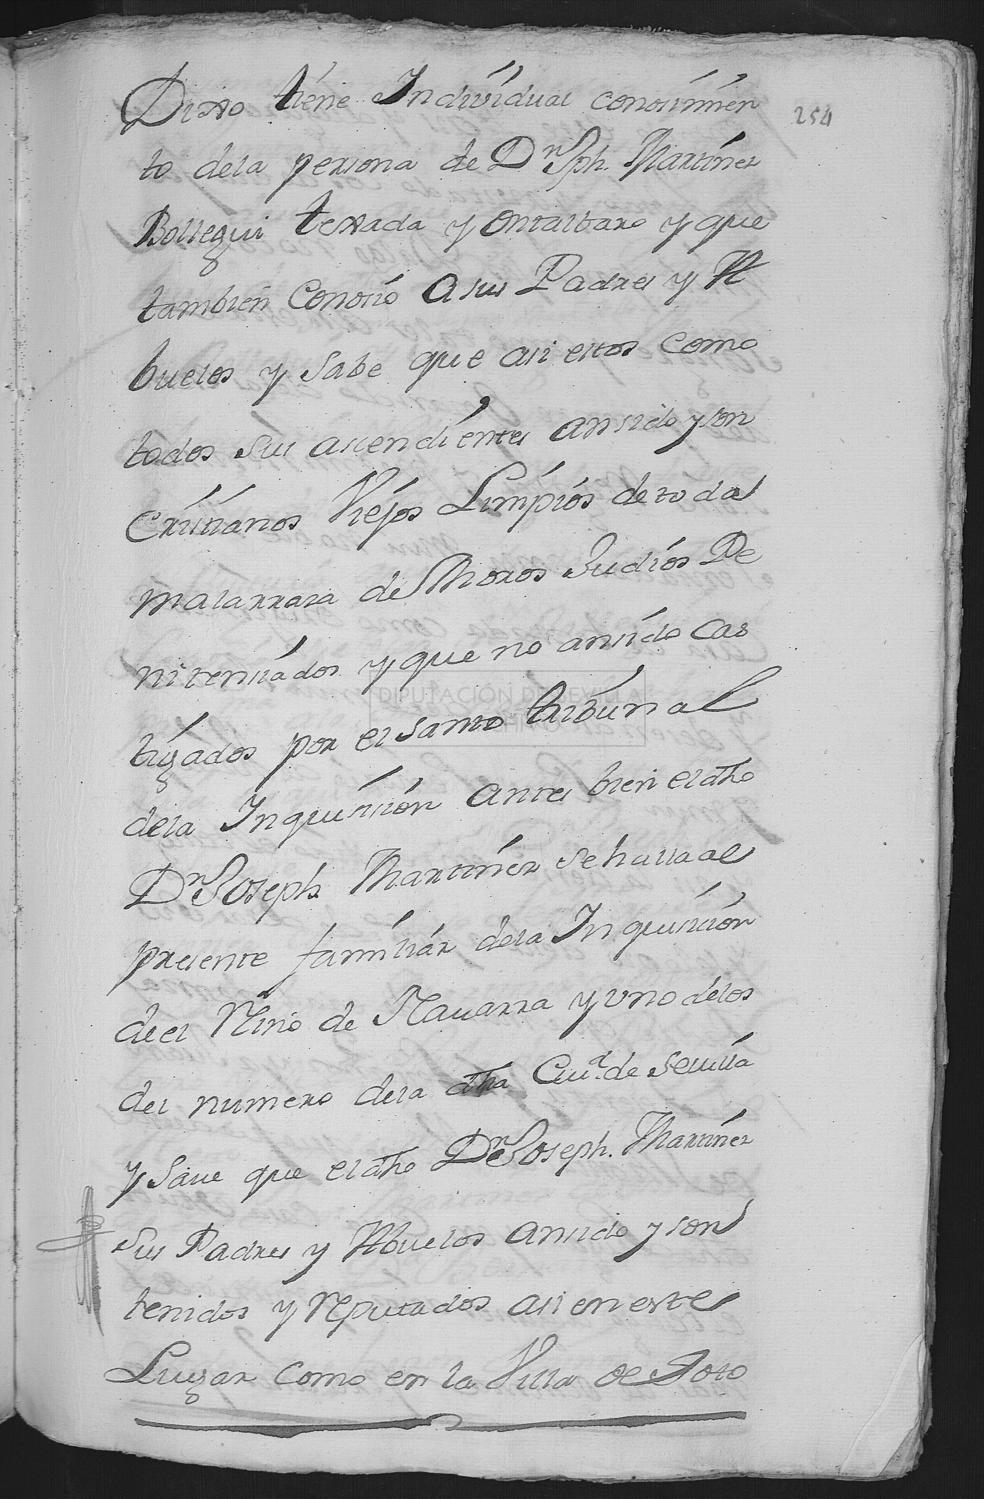 Dixo tiene Individual conosimien
254
to dela persona de Dn Jph. Martinez
Bollegui texada y ontalbaro y que
tambien Conosio a sus Padres y A
buelos y Sabe que asi estos Como
todos sus asendientes an sido y son
Cristianos Viejos Limpios de toda
malarrasa de Moros Judios Pe
nitensiados y que no an sido Cas
DIPUTACIÓN DE SEVILLA
tigados por el santo tribunal
dela Inquisision antes bien el dho
Dn Joseph Martinez se halla al
presente familiar dela Inquisision
del Rino de Nauarra y uno delos
del numero dela dha Ciud. de Seuilla
y Saue que el dho Dn Joseph. Martinez
Sus Padres y Abuelos an sido y son
tenidos y Reputados asi en este
Lugar como en la Villa de Soto